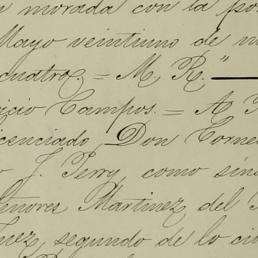 morada con la po
Mayo veintiuno de m
cuatro. = M. R."
icio Campos. = A.
icenciado, Don Corne
o J. Perry, como sín
Señores Martinez del
uez, segundo de lo ci